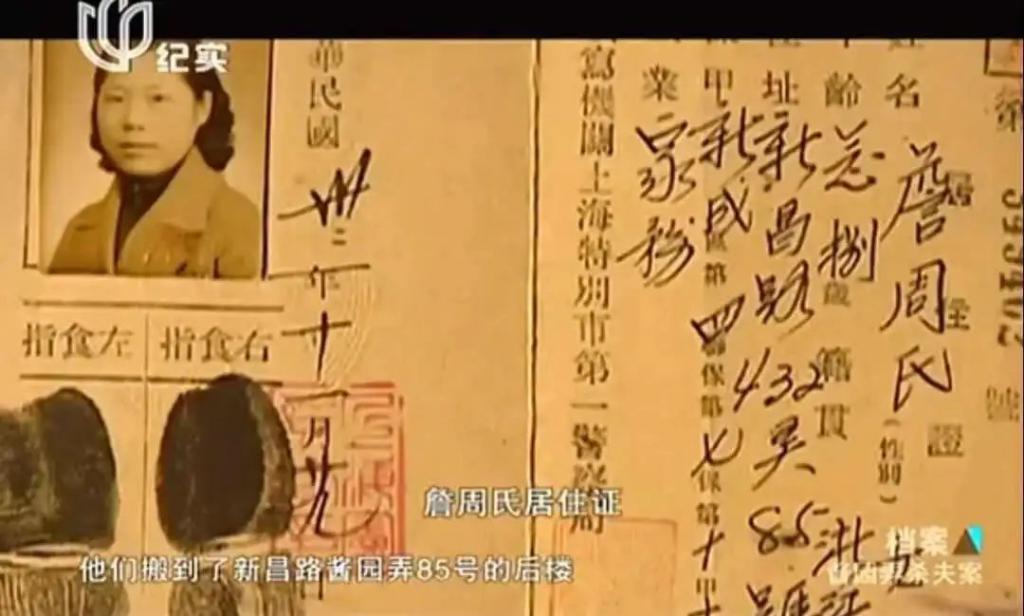 纪实
居住證
名 詹周氏（性別）
齡 念捌歲 籍貫 浙江
址 新昌路432弄85號
保甲 新成區第四聯保第七保第十甲
業 家務
寫機關上海特別市第一警察局
華民國卅二年十一月廿九
指食左
指食右
詹周氏居住证
他们搬到了新昌路酱园弄85号的后楼
档案
酱园弄杀夫案